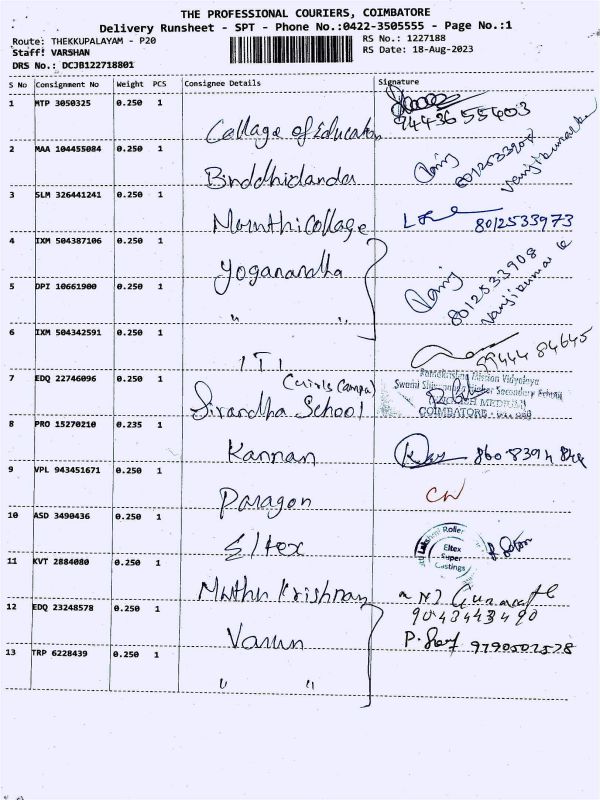 THE PROFESSIONAL COURIERS, COIMBATORE
Delivery Runsheet - SPT - Phone No.:0422-3505555 - Page No.:1
Route: THEKKUPALAYAM - P20
RS No.: 1227188
Staff: VARSHAN
RS Date: 18-Aug-2023
DRS No.: DCJB122718801
S No Consignment No Weight PCS Consignee Details Signature
1 MTP 3050325 0.250 1
Collage of Education 9443655403
2 MAA 104455084 0.250 1
Buddhidanda 8012533908
Vanjikumar
3 SLM 326441241 0.250 1
Maruthi Collage 8012533973
4 IXM 504387106 0.250 1
Yoganandha 8012533908
Vanjikumar
5 DPI 10661900 0.250 1
" "
6 IXM 504342591 0.250 1
ITI 99444 84645
7 EDQ 22746096 0.250 1
(Girls Campa)
Sirardha School
Ramakrishna Mission Vidyalaya
Swami Shivananda Higher Secondary School
(ENGLISH MEDIUM)
COIMBATORE
8 PRO 15270210 0.235 1
Kannan
9 VPL 943451671 0.250 1
Paragon
10 ASD 3490436 0.250 1
Eltex
Lakshmi Roller
Eltex
Super
Castings
11 KVT 2884080 0.250 1
Muthu Krishnan
9043443490
12 EDQ 23248578 0.250 1
Varun 9790502528
13 TRP 6228439 0.250 1
" "